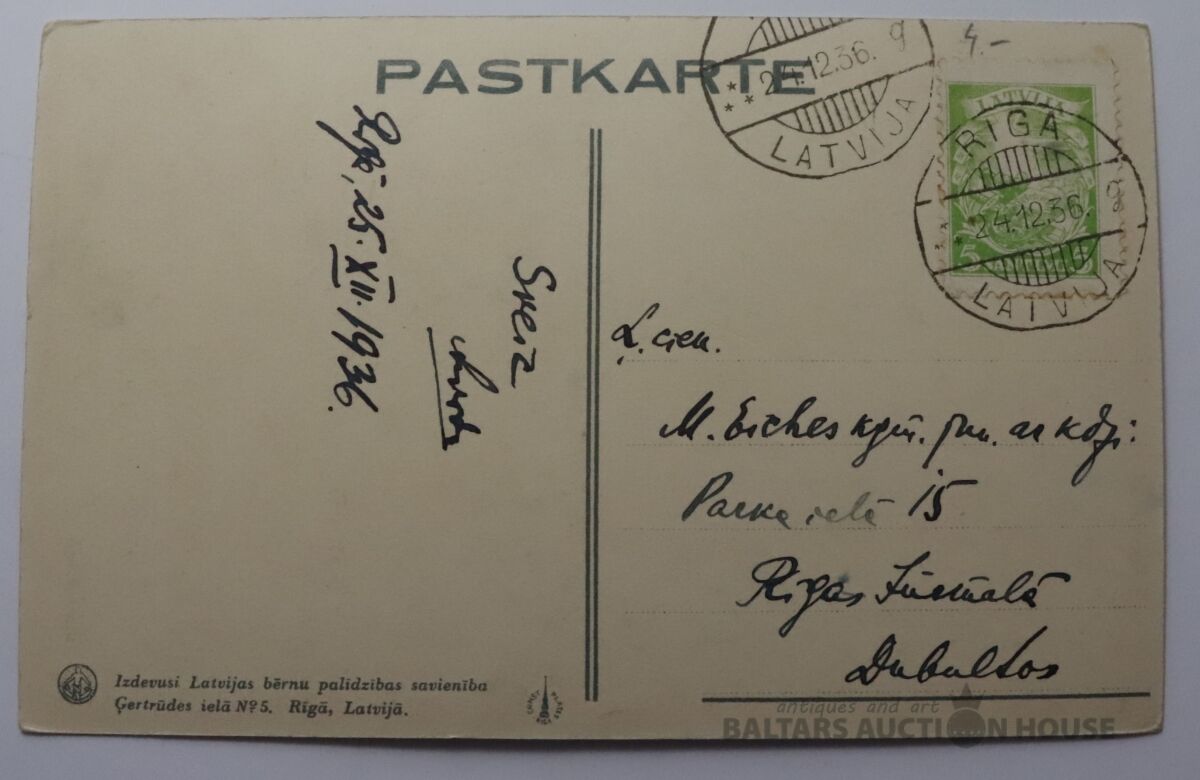 PASTKARTE
24.12.36. g
LATVIJA
4.-
LATVIJA
RIGA
24.12.36. g
LATVIJA
5
Rīgā, 25. XII. 1936.
Sveiz
Ļ. cien.
M. Eiches kgm. un ar kdzi:
Parka ielā 15
Rīgas Jūrmalā
Dubultos
Izdevusi Latvijas bērnu palīdzības savienība
Ģertrūdes ielā Nº 5. Rīgā, Latvijā.
antiques and art
BALTARS AUCTION HOUSE